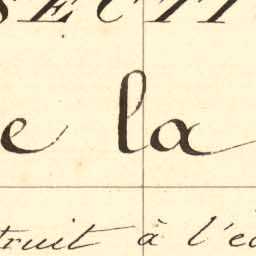 SECTI
e la
truit à l'éc